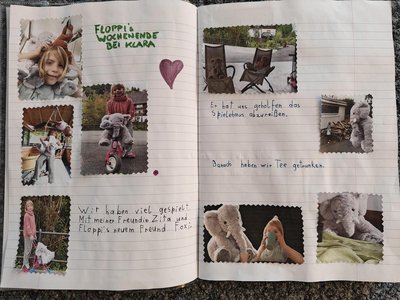 FLOPPI's
WOCHENENDE
BEI KLARA
Wir haben viel gespielt
Mit meiner Freundin Zita und
Floppis neuem Freund Foxi.
Er hat uns geholfen das
Spielehaus abzureißen.
Danach haben wir Tee getrunken.